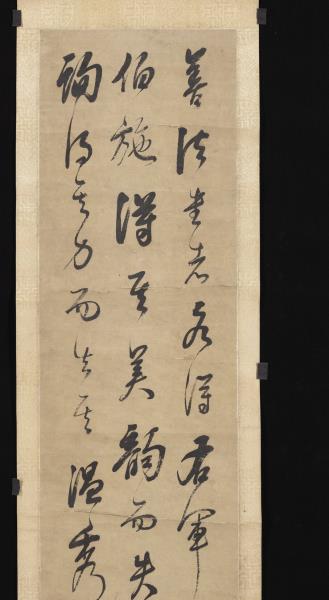 善法書者各得右軍
伯施得其美韻而失
詢得其力而失其溫秀